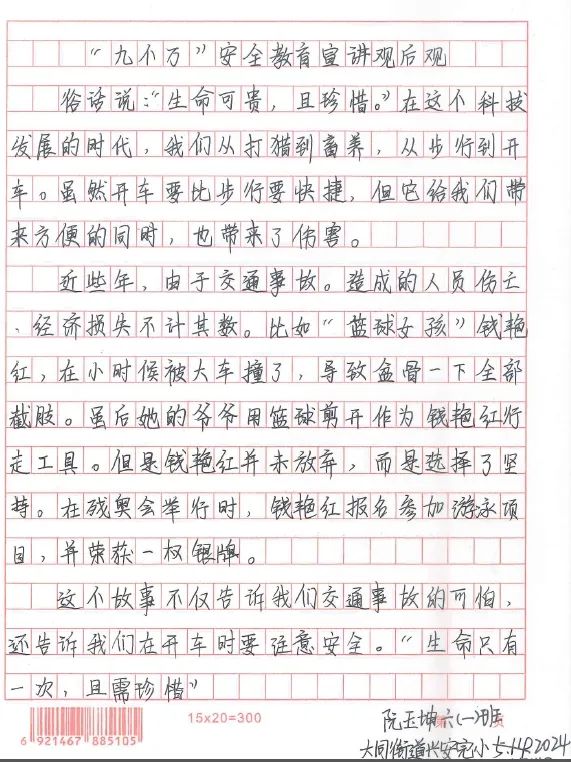 “九个万”安全教育宣讲观后观
俗话说：“生命可贵，且珍惜。”在这个科技
发展的时代，我们从打猎到畜养，从步行到开
车。虽然开车要比步行要快捷，但它给我们带
来方便的同时，也带来了伤害。
近些年，由于交通事故。造成的人员伤亡
、经济损失不计其数。比如“蓝球女孩”钱艳
红，在小时候被大车撞了，导致盆骨一下全部
截肢。虽后她的爷爷用篮球剪开作为钱艳红行
走工具。但是钱艳红并未放弃，而是选择了坚
持。在残奥会举行时，钱艳红报名参加游泳项
目，并荣获一枚银牌。
这个故事不仅告诉我们交通事故的可怕，
还告诉我们在开车时要注意安全。“生命只有
一次，且需珍惜”
15x20=300
阮玉坤六(一)班
6 921467 885105
大同街道兴安完小5.14.2024